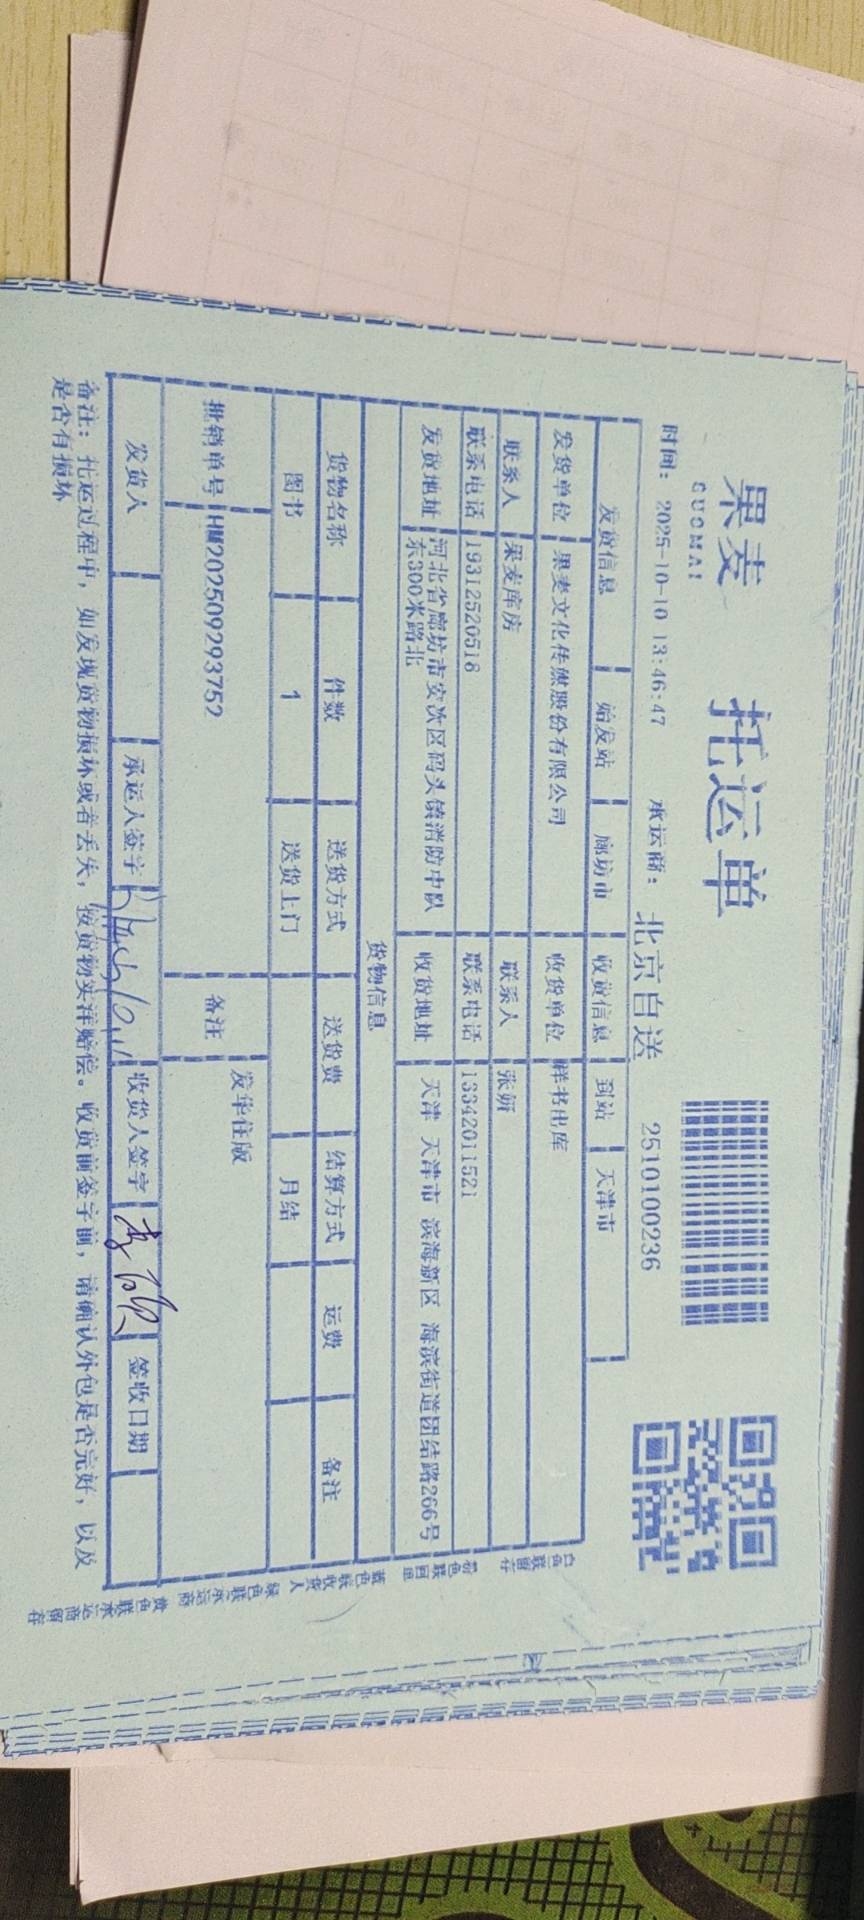 果麦
GUOMAI
托运单
时间： 2025-10-10 13:46:47 承运商： 北京自送 2510100236
发货信息 始发站 廊坊市 收货信息 到站 天津市
发货单位 果麦文化传媒股份有限公司 收货单位 样书出库
联系人 果麦库房 联系人 张妍
联系电话 19312520518 联系电话 13342011521
发货地址 河北省廊坊市安次区码头镇消防中队
东300米路北 收货地址 天津 天津市 滨海新区 海滨街道团结路266号
货物信息
货物名称 件数 送货方式 送货费 结算方式 运费 备注
图书 1 送货上门 月结
批销单号 HM202509293752 备注 发华住版
发货人 承运人签字 收货人签字 签收日期
备注：托运过程中，如发现货物损坏或者丢失，按货物实洋赔偿。收货前签字前，请确认外包是否完好，以及
是否有损坏
白色联留存
粉色联回单
蓝色联收货人
绿色联承运商
黄色联承运商留存